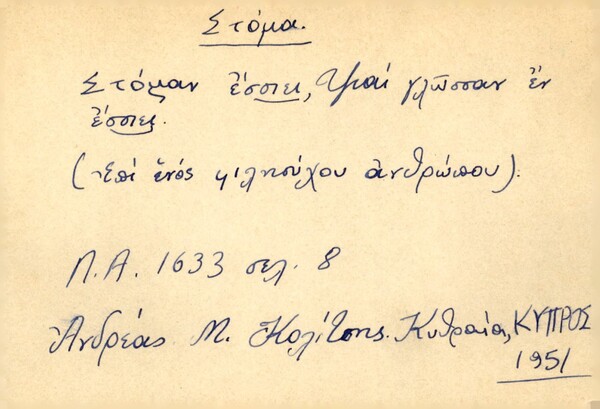 Στόμα.
Στόμαν ἔσσιει, τζ̌αί γλῶσσαν ἔν
ἔσσιει.
(Ἐπί ἑνός φιλησύχου ἀνθρώπου).
Λ.Α. 1633 σελ. 8
Ἀνδρέας Μ. Κολίτσης. Κυθραία, ΚΥΠΡΟΣ
1951